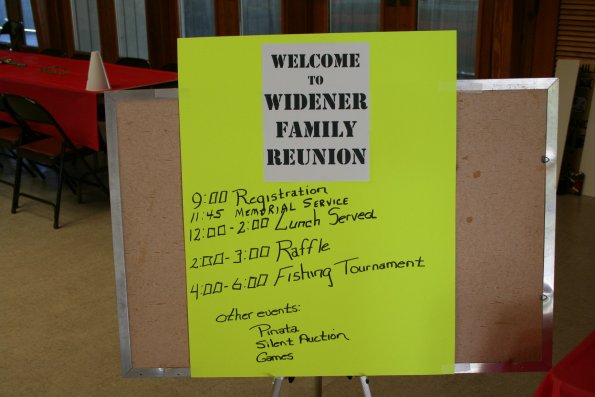 WELCOME
TO
WIDENER
FAMILY
REUNION
9:00 Registration
11:45 MEMORIAL SERVICE
12:00-2:00 Lunch Served
2:00-3:00 Raffle
4:00-6:00 Fishing Tournament
Other events:
Pinata
Silent Auction
Games